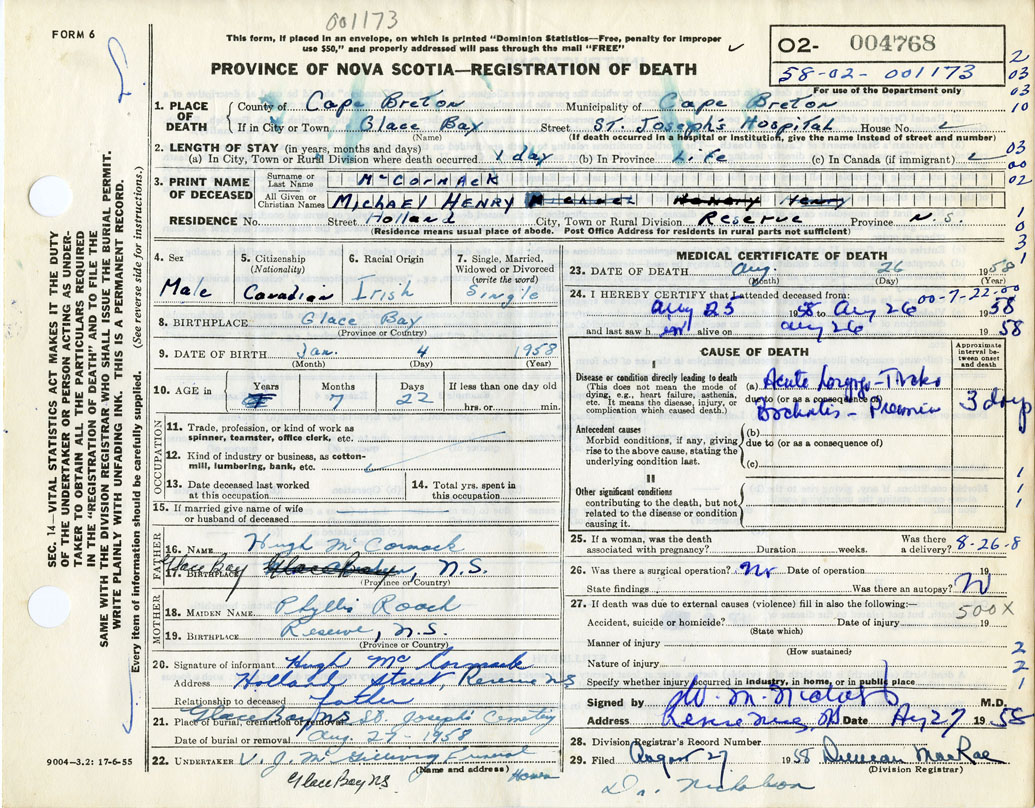 001173
FORM 6
This form, if placed in an envelope, on which is printed "Dominion Statistics—Free, penalty for improper
use $50," and properly addressed will pass through the mail "FREE"
PROVINCE OF NOVA SCOTIA—REGISTRATION OF DEATH
O2- 004768
58-02- 001173
For use of the Department only
2
03
03
10
03
00
02
1
0
3
1
1. PLACE OF DEATH
County of Cape Breton Municipality of Cape Breton
If in City or Town Glace Bay Street St. Joseph's Hospital House No.
(Name) (If death occurred in a hospital or institution, give the name instead of street and number)
2. LENGTH OF STAY (in years, months and days)
(a) In City, Town or Rural Division where death occurred 1 day (b) In Province Life (c) In Canada (if immigrant)
3. PRINT NAME OF DECEASED
Surname or Last Name McCORMACK
All Given or Christian Names MICHAEL HENRY Michael Henry Henry
RESIDENCE No. Street Holland City, Town or Rural Division Reserve Province N.S.
(Residence means usual place of abode. Post Office Address for residents in rural parts not sufficient)
SEC. 14—VITAL STATISTICS ACT MAKES IT THE DUTY
OF THE UNDERTAKER OR PERSON ACTING AS UNDER-
TAKER TO OBTAIN ALL THE PARTICULARS REQUIRED
IN THE "REGISTRATION OF DEATH" AND TO FILE THE
SAME WITH THE DIVISION REGISTRAR WHO SHALL ISSUE THE BURIAL PERMIT.
WRITE PLAINLY WITH UNFADING INK. THIS IS A PERMANENT RECORD.
Every item of information should be carefully supplied. (See reverse side for instructions.)
4. Sex
Male
5. Citizenship
(Nationality)
Canadian
6. Racial Origin
Irish
7. Single, Married,
Widowed or Divorced
(write the word)
Single
8. BIRTHPLACE Glace Bay
(Province or Country)
9. DATE OF BIRTH Jan. 4 1958
(Month) (Day) (Year)
10. AGE in Years Months Days If less than one day old
7 22 hrs. or min.
OCCUPATION
11. Trade, profession, or kind of work as
spinner, teamster, office clerk, etc.
12. Kind of industry or business, as cotton-
mill, lumbering, bank, etc.
13. Date deceased last worked
at this occupation
14. Total yrs. spent in
this occupation
15. If married give name of wife
or husband of deceased
FATHER
16. NAME Hugh McCormack
17. BIRTHPLACE Glace Bay, N.S.
(Province or Country)
MOTHER
18. MAIDEN NAME Phyllis Roach
19. BIRTHPLACE Reserve, N.S.
(Province or Country)
20. Signature of informant Hugh McCormack
Address Holland Street, Reserve NS
Relationship to deceased Father
21. Place of burial, cremation or removal Glace Bay N.S. St. Joseph's Cemetery
Date of burial or removal Aug. 27 - 1958
22. UNDERTAKER V. J. McGillivray Funeral
(Name and address) Home
Glace Bay N.S.
9004—3.2: 17-6-55
MEDICAL CERTIFICATE OF DEATH
23. DATE OF DEATH Aug. 26 1958
(Month) (Day) (Year)
24. I HEREBY CERTIFY that I attended deceased from: 00-7-22.00
Aug 25 1958 to Aug 26 1958
and last saw h im alive on Aug 26 1958
CAUSE OF DEATH
Approximate
interval be-
tween onset
and death
I
Disease or condition directly leading to death
(This does not mean the mode of
dying, e.g., heart failure, asthenia,
etc. It means the disease, injury, or
complication which caused death.)
(a) Acute
due to (or as a consequence of)
3 days
Antecedent causes
Morbid conditions, if any, giving
rise to the above cause, stating the
underlying condition last.
(b)
due to (or as a consequence of)
(c)
II
Other significant conditions
contributing to the death, but not
related to the disease or condition
causing it.
1
1
1
25. If a woman, was the death
associated with pregnancy? Duration weeks. Was there
a delivery? 8-26-8
26. Was there a surgical operation? No Date of operation 19
State findings Was there an autopsy? N
27. If death was due to external causes (violence) fill in also the following:— 500X
Accident, suicide or homicide? Date of injury 19
(State which)
Manner of injury 2
(How sustained)
Nature of injury 2
Specify whether injury occurred in industry, in home, or in public place 1
Signed by M.D.
Address Date Aug 27 1958
28. Division Registrar's Record Number
29. Filed August 27 1958 Duncan MacRae
(Division Registrar)
Dr. Nicholson